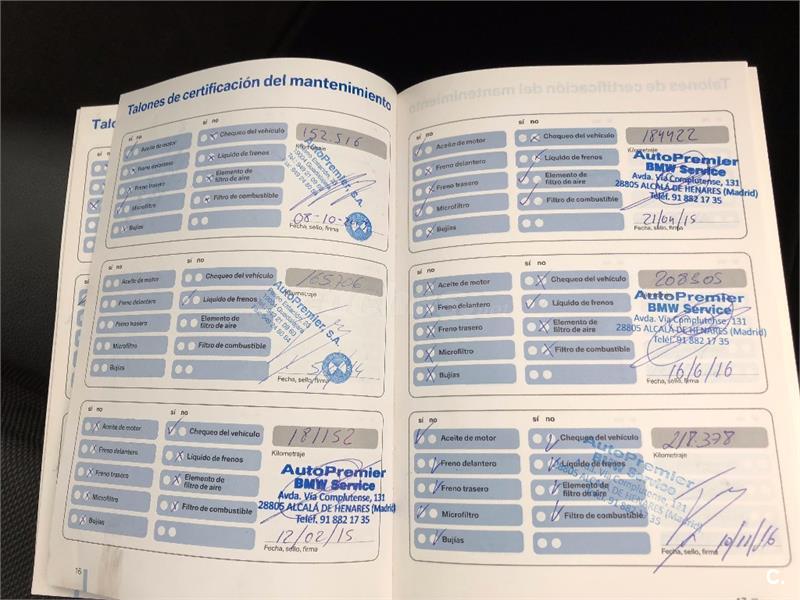 Talones de certificación del mantenimiento
sí no
Aceite de motor
Freno delantero
Freno trasero
Microfiltro
Bujías
sí no
Chequeo del vehículo
Líquido de frenos
Elemento de filtro de aire
Filtro de combustible
152.516
Kilometraje
AutoPremier, S.A.
08-10-
Fecha, sello, firma
sí no
Aceite de motor
Freno delantero
Freno trasero
Microfiltro
Bujías
sí no
Chequeo del vehículo
Líquido de frenos
Elemento de
filtro de aire
Filtro de combustible
Kilometraje
AutoPremier, S.A.
Fecha, sello, firma
sí no
Aceite de motor
Freno delantero
Freno trasero
Microfiltro
Bujías
sí no
Chequeo del vehículo
Líquido de frenos
Elemento de
filtro de aire
Filtro de combustible
181152
Kilometraje
AutoPremier
BMW Service
Avda. Vía Complutense, 131
28805 ALCALÁ DE HENARES (Madrid)
Teléf. 91 882 17 35
12/02/15
Fecha, sello, firma
16
sí no
Aceite de motor
Freno delantero
Freno trasero
Microfiltro
Bujías
sí no
Chequeo del vehículo
Líquido de frenos
Elemento de
filtro de aire
Filtro de combustible
184422
Kilometraje
AutoPremier
BMW Service
Avda. Vía Complutense, 131
28805 ALCALÁ DE HENARES (Madrid)
Teléf. 91 882 17 35
21/04/15
Fecha, sello, firma
sí no
Aceite de motor
Freno delantero
Freno trasero
Microfiltro
Bujías
sí no
Chequeo del vehículo
Líquido de frenos
Elemento de
filtro de aire
Filtro de combustible
208305
Kilometraje
AutoPremier
BMW Service
Avda. Vía Complutense, 131
28805 ALCALÁ DE HENARES (Madrid)
Teléf. 91 882 17 35
16/6/16
Fecha, sello, firma
sí no
Aceite de motor
Freno delantero
Freno trasero
Microfiltro
Bujías
sí no
Chequeo del vehículo
Líquido de frenos
Elemento de
filtro de aire
Filtro de combustible
218.378
Kilometraje
AutoPremier
BMW Service
Avda. Vía Complutense, 131
DE HENARES (Madrid)
91 882 17 35
10/11/16
Fecha, sello, firma